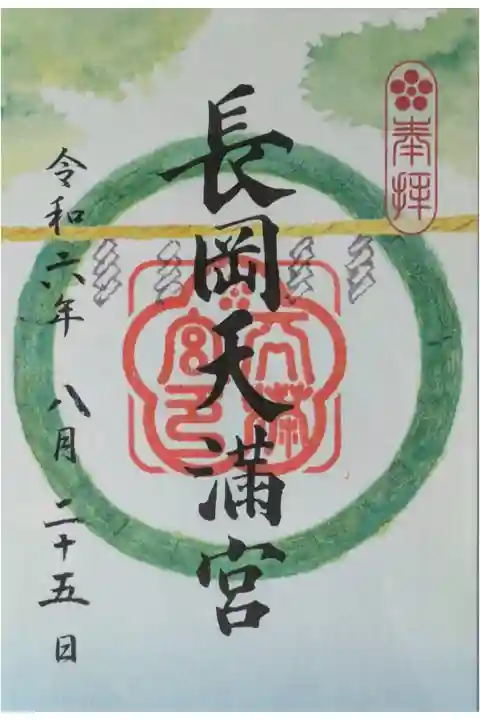 奉拝
長岡天満宮
令和六年 八月 二十五日